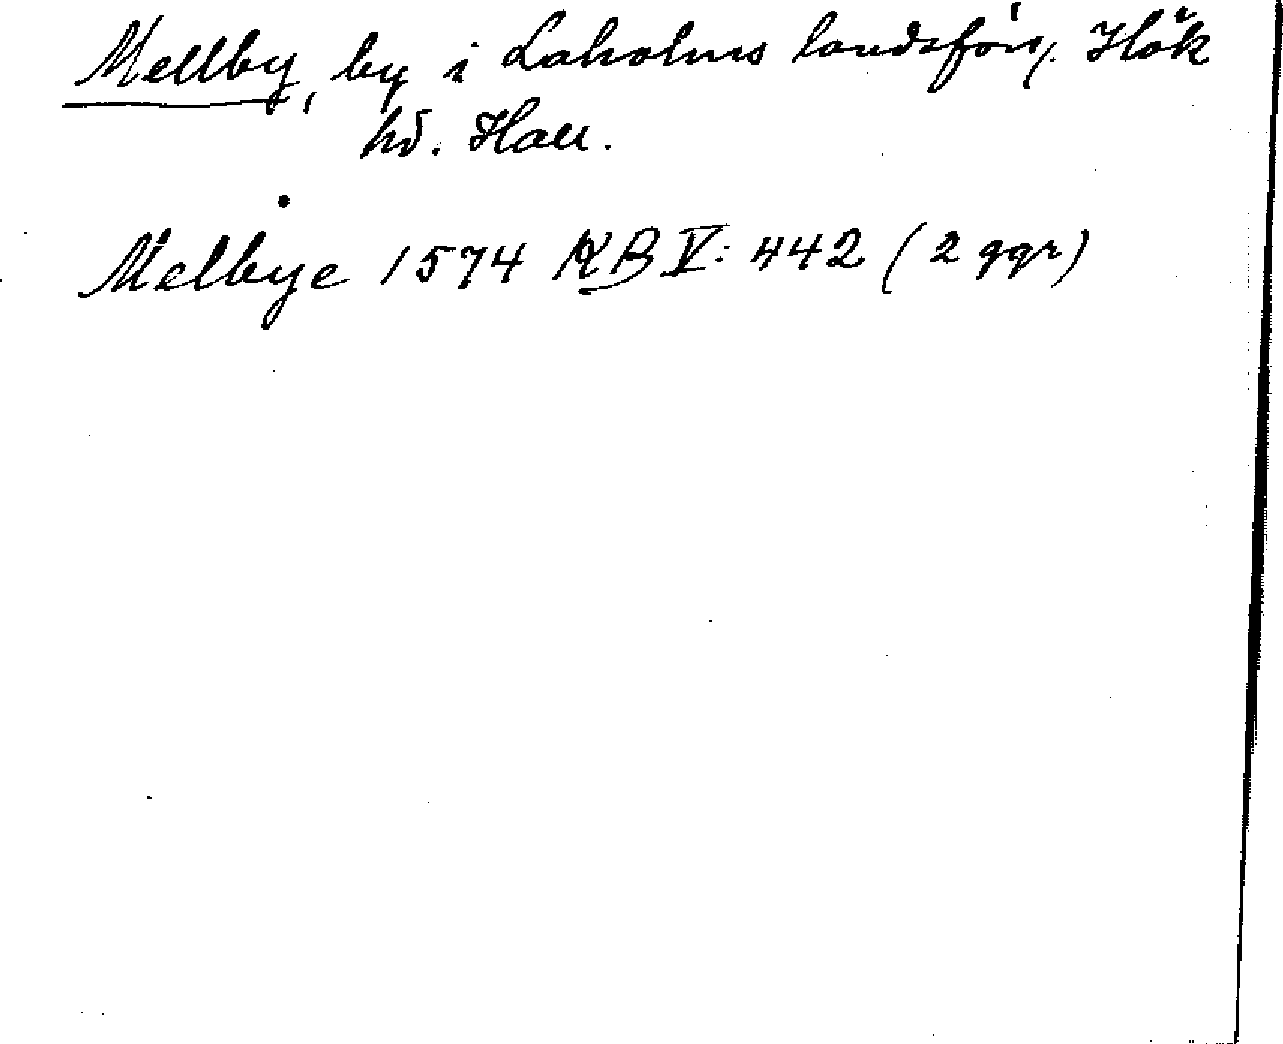 Mellby, by i Laholms landsförs. Hök
hd. Hall.
Melbye 1574 KB V: 442 (2 ggr)